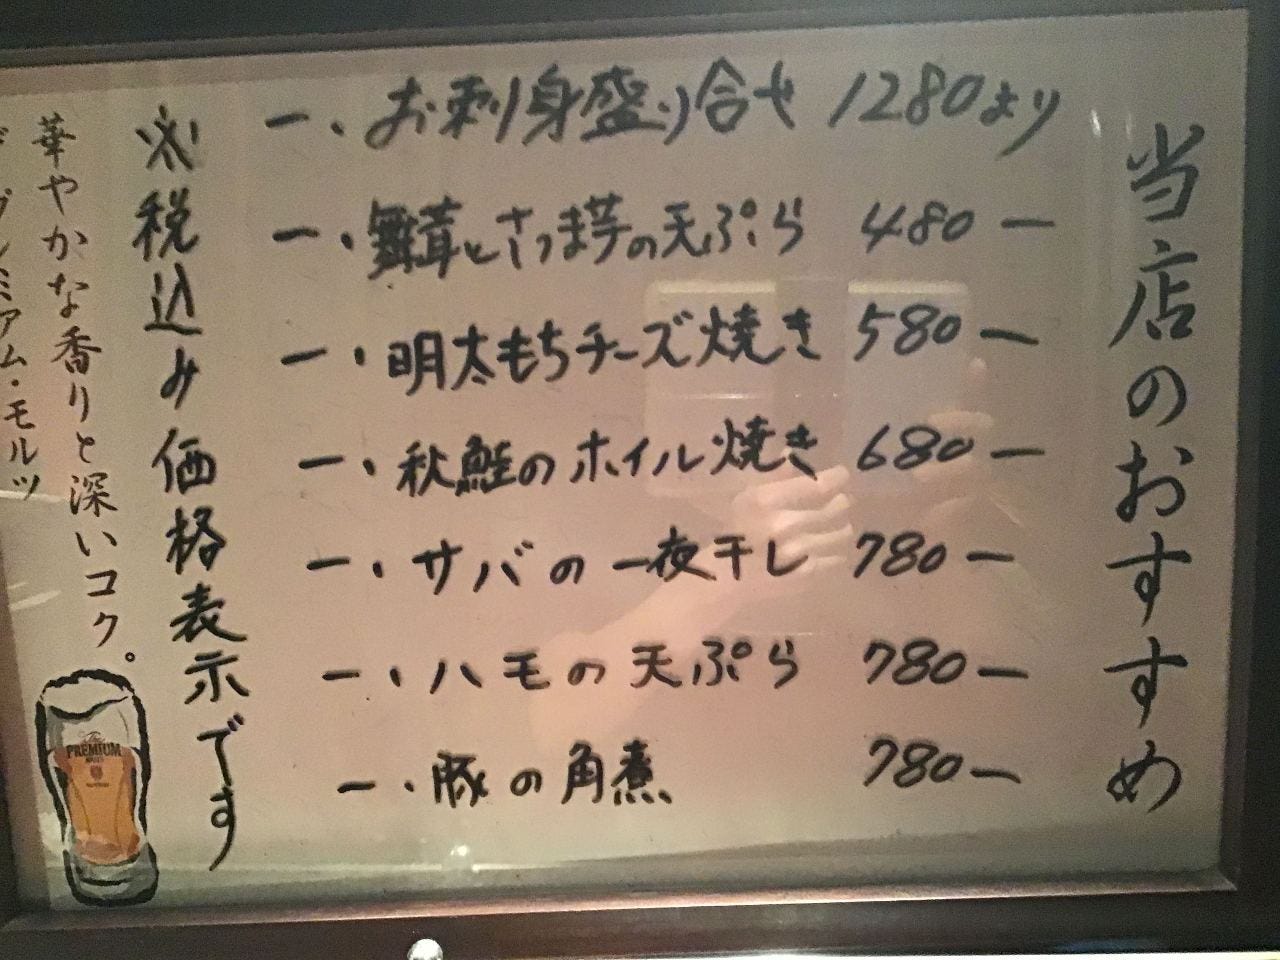 当店のおすすめ
一、お刺身盛り合せ 1280より
一、舞茸とさつま芋の天ぷら 480ー
一、明太もちチーズ焼き 580ー
一、秋鮭のホイル焼き 680ー
一、サバの一夜干し 780ー
一、ハモの天ぷら 780ー
一、豚の角煮 780ー
※税込み価格表示です
華やかな香りと深いコク。
ザ・プレミアム・モルツ
The
PREMIUM
MALT'S